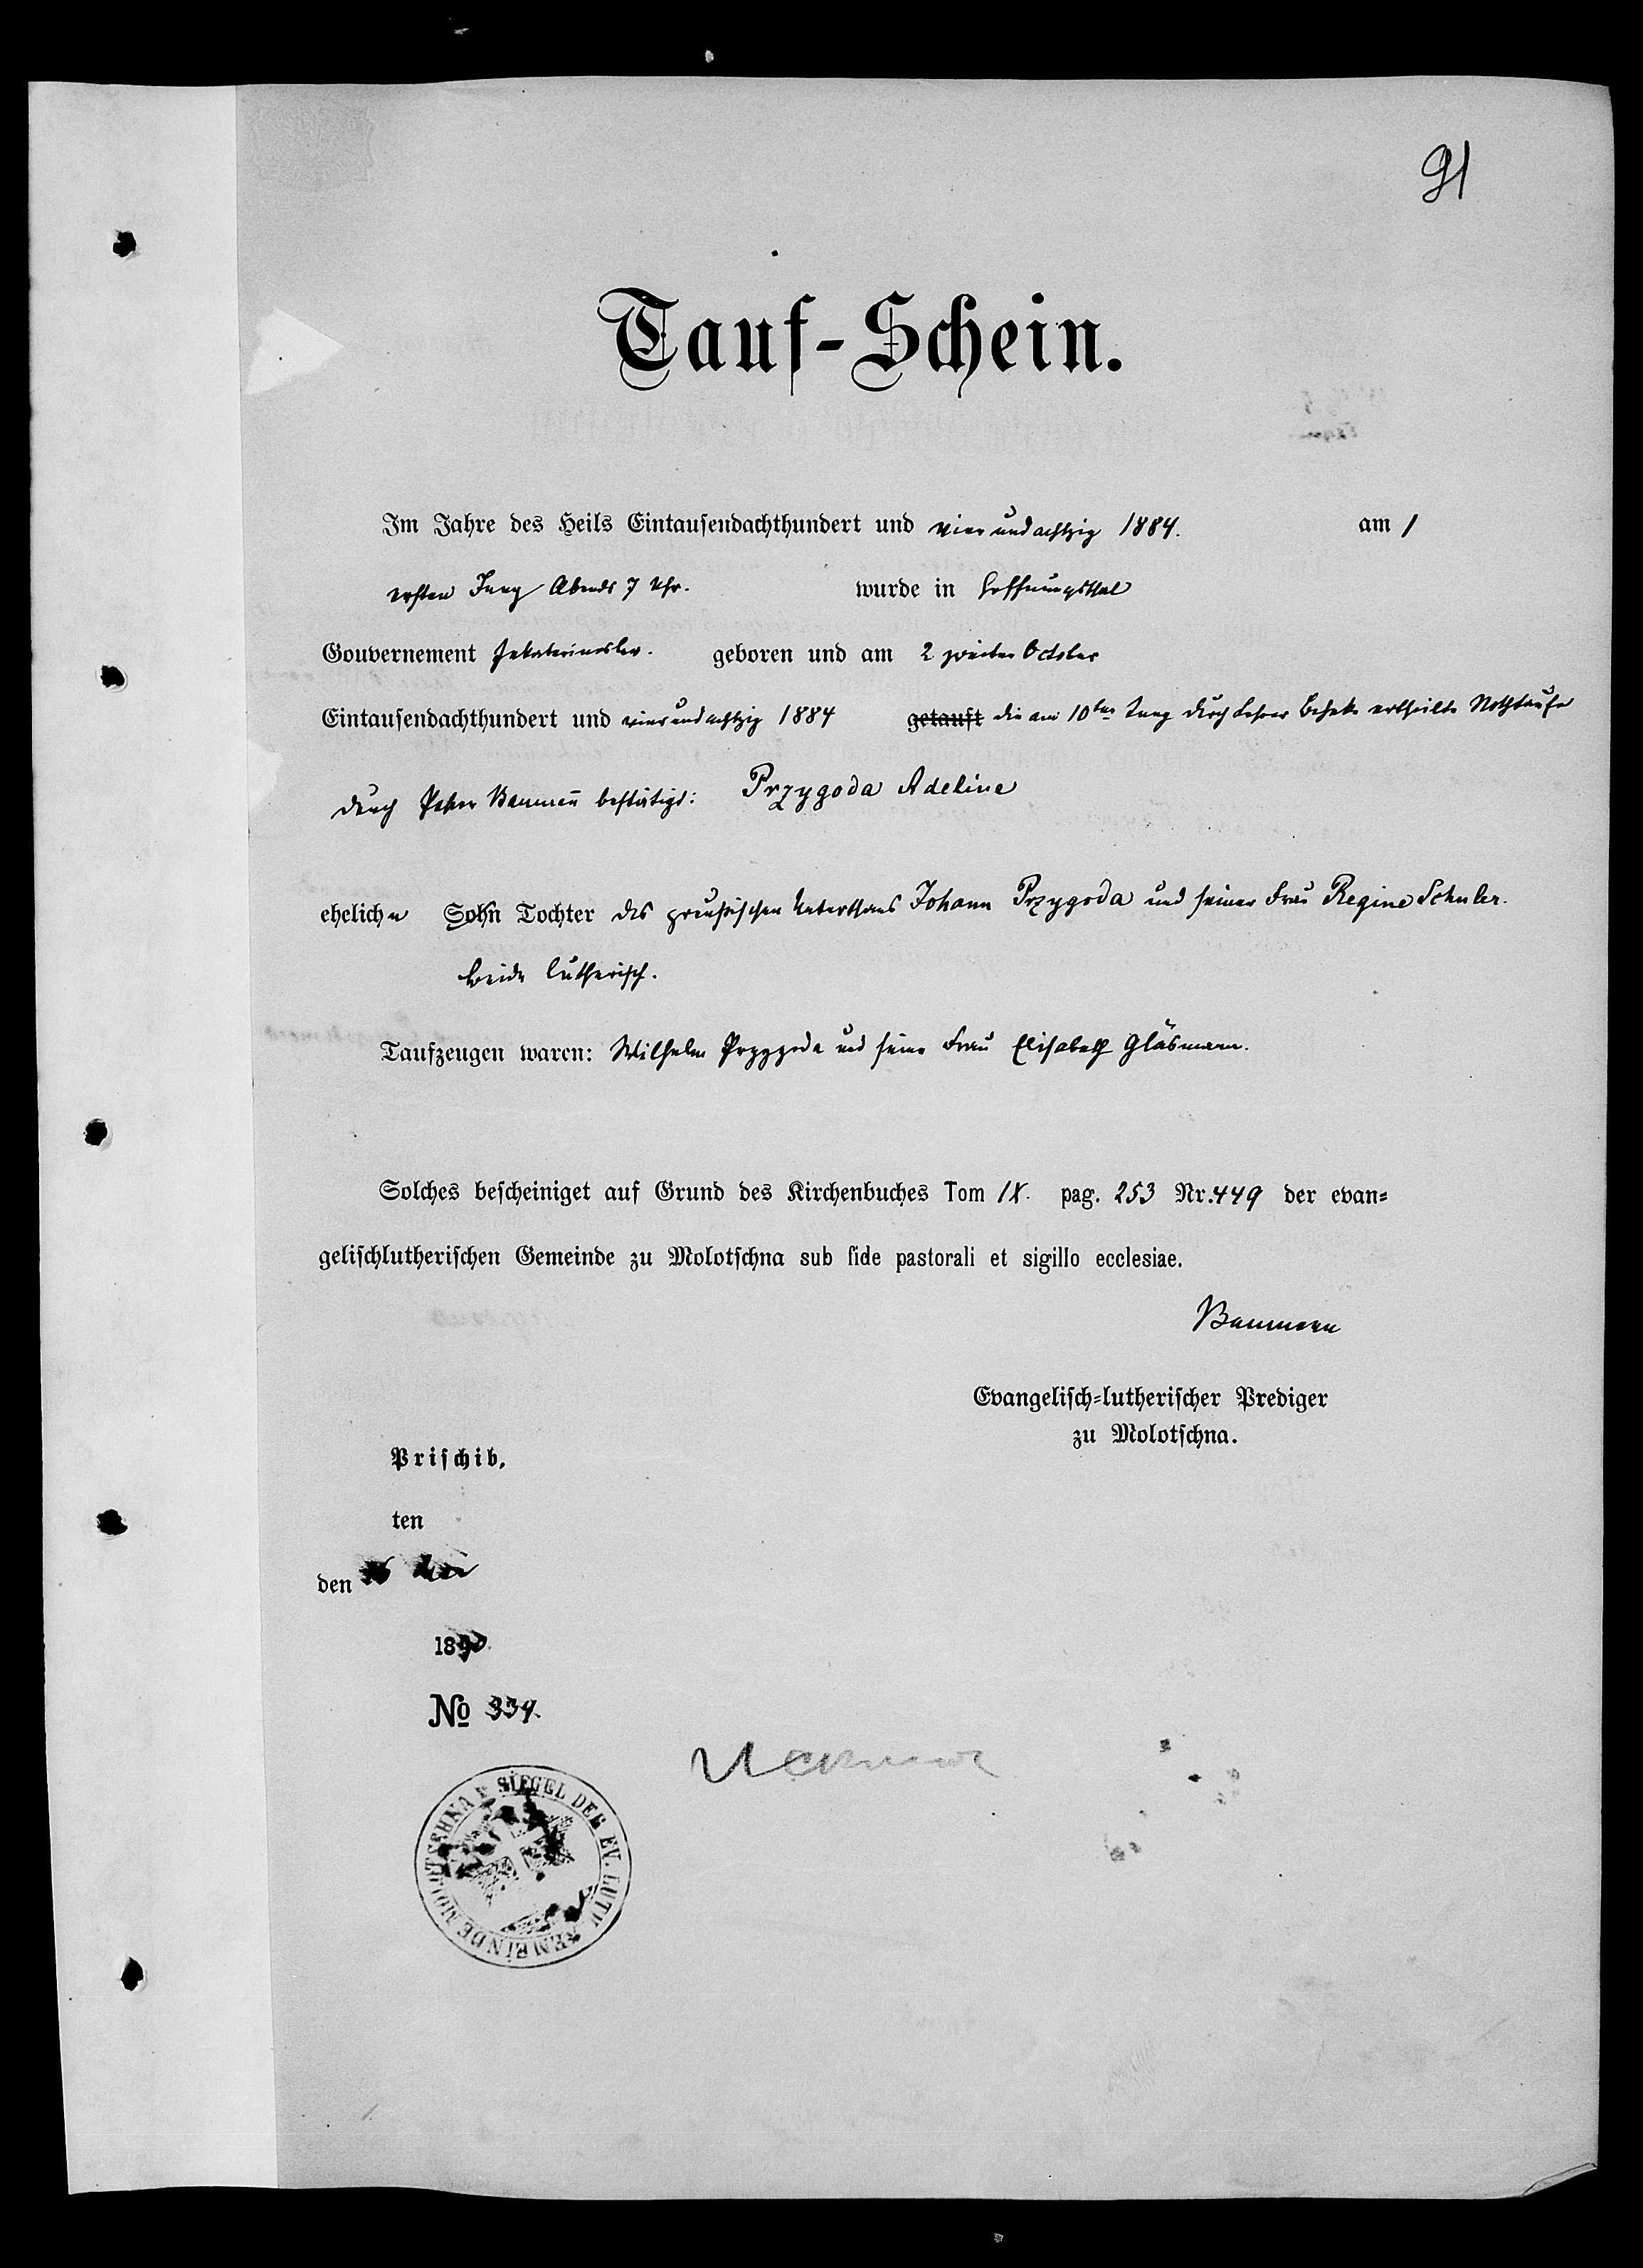 91
Tauf-Schein.
Im Jahre des Heils Eintausendachthundert und vierundachtzig 1884. am 1
ersten Abends 7 Uhr. wurde in Hoffnungsthal
Gouvernement Jekaterinoslav. geboren und am 2 zweiten October
Eintausendachthundert und vierundachtzig 1884 getauft die am 10ten durch Lehrer ertheilte Nothtaufe
durch Pastor Baumann bestätigt: Przygoda Adeline
eheliche Sohn Tochter des preußischen Unterthans Johann Przygoda und seiner Frau Regine Schuler.
beide lutherisch.
Taufzeugen waren: Wilhelm Przygoda und seine Frau Elisabeth Gläsmann.
Solches bescheiniget auf Grund des Kirchenbuches Tom IX. pag. 253 Nr. 449 der evan-
gelischlutherischen Gemeinde zu Molotschna sub fide pastorali et sigillo ecclesiae.
Baumann
Evangelisch-lutherischer Prediger
zu Molotschna.
Prischib,
ten
den
1890.
No 334.
SIEGEL DER EV. LUTH GEMEINDE MOLOTSCHNA